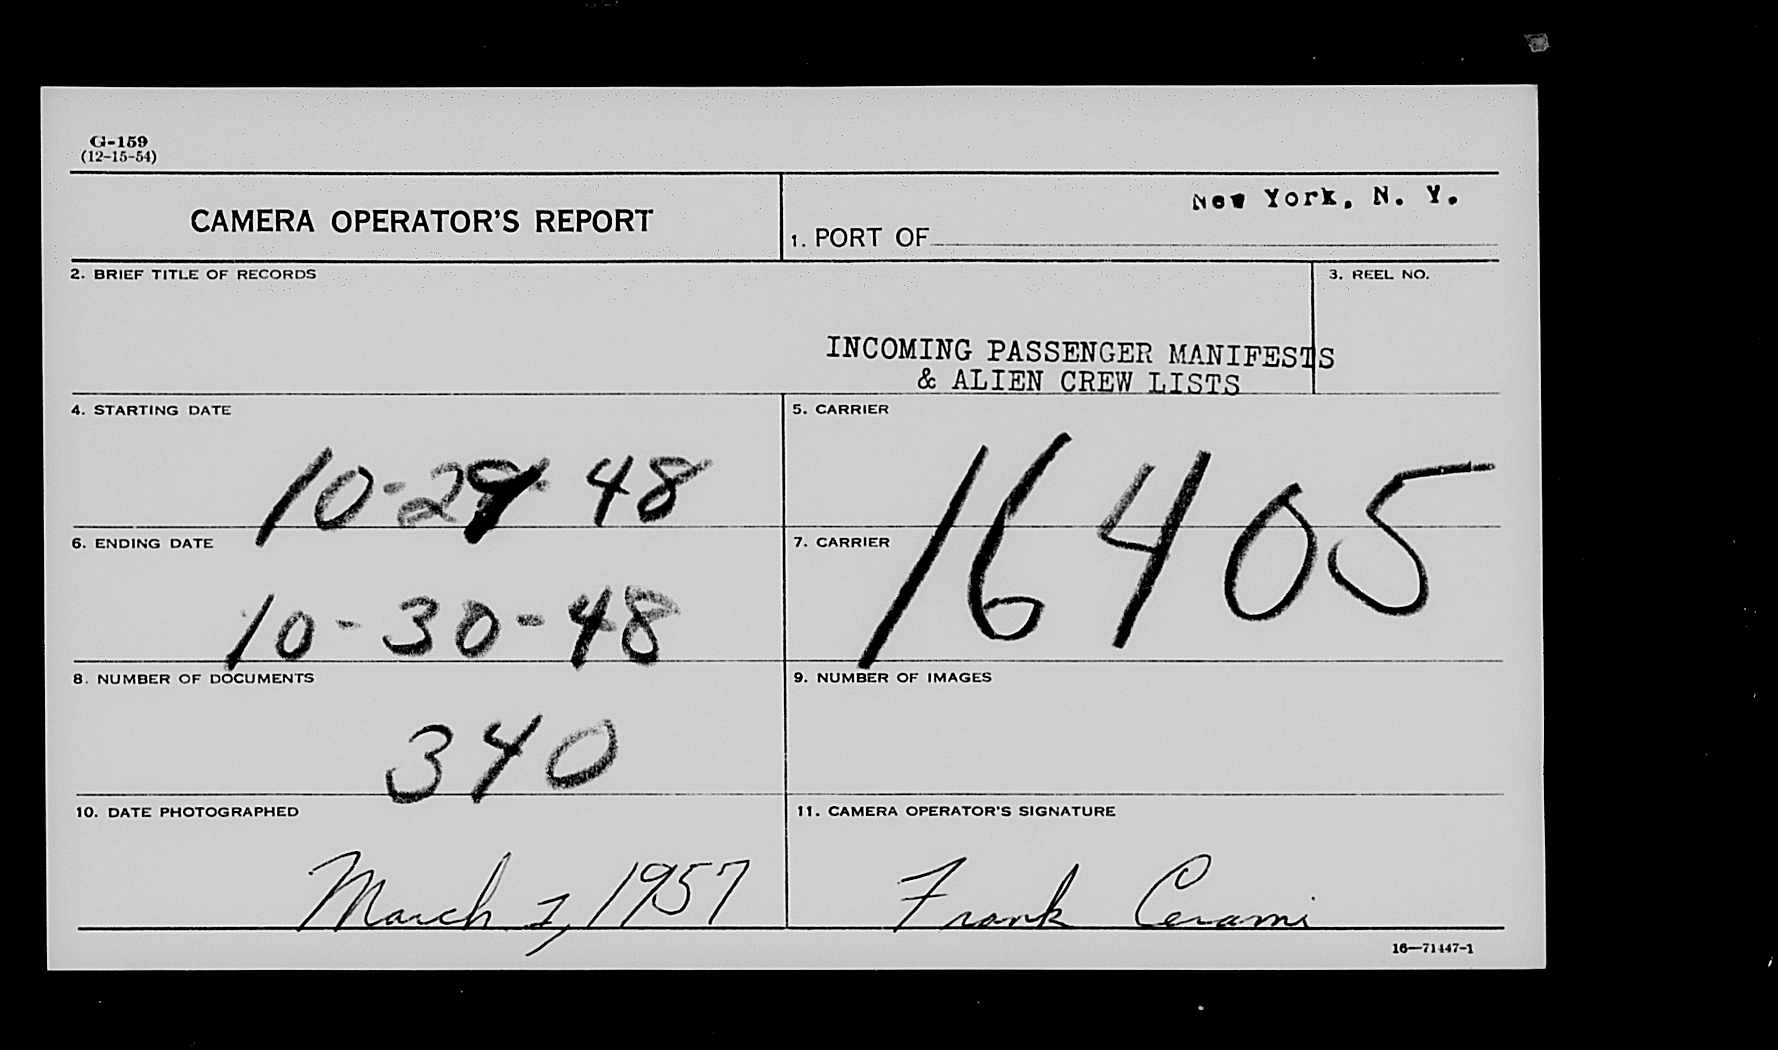 G-159
(12-15-54)
CAMERA OPERATOR'S REPORT
New York, N. Y.
1. PORT OF
2. BRIEF TITLE OF RECORDS
3. REEL NO.
INCOMING PASSENGER MANIFESTS
& ALIEN CREW LISTS
4. STARTING DATE
10-29-48
5. CARRIER
16405
6. ENDING DATE
10-30-48
7. CARRIER
8. NUMBER OF DOCUMENTS
340
9. NUMBER OF IMAGES
10. DATE PHOTOGRAPHED
March 1, 1957
11. CAMERA OPERATOR'S SIGNATURE
Frank Cerami
16—71447-1